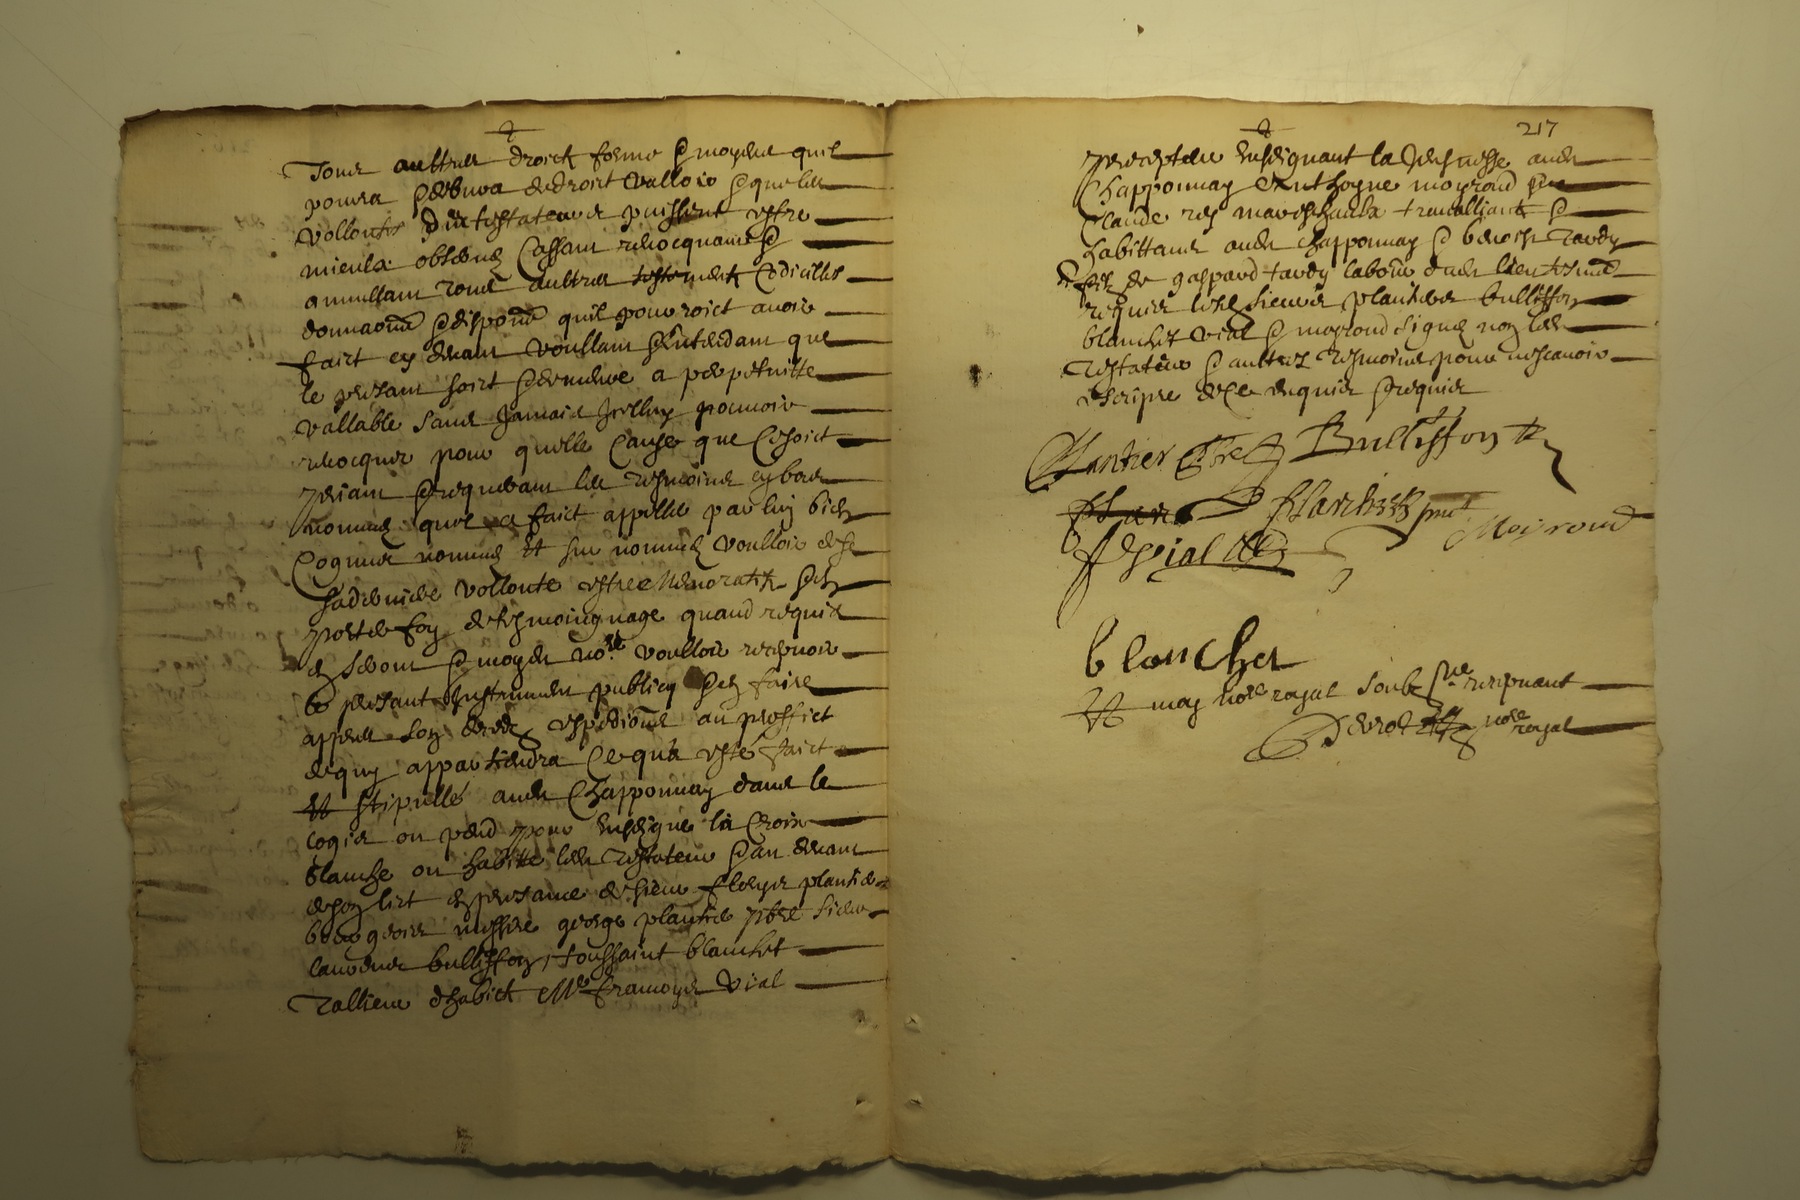 Tous aultres droict forme & moyens quil
poura & debvra de droict valloir & que les
vollontes du testateur puissent estre
mieulx obtenus Cassant revocquant &
annullant tous aultres testements Codicilles
donnaons & dispons quil pouroict avoir
faict cy devant voullant & entendant que
le presant soict & demeure a perpetuitte
vallable sans Jamais Icelluy pouvoir
revocquer pour quelle Cause que Ce soict
priant & requerant les tesmoins cy bas
nommes quil a faict appeller par luy bien
Cogneus nommes Et sur nommes voulloir de sa
sa derniere vollonte estre memoratifz & en
porter foy & tesmoingnage quand requis
en seront & moyd nore voulloir recepvoir
le presant Instrument publicq & en faire
appres son deces expedions au proffict
de quy appartiendra Ce qua esté faict
Et stipullé aud Chapponnay dans le
logis ou pend pour enseigne la Croix
blanche ou habitte led testateur & au devant
de son lict en presance de sieur fleury plantier
bourgeois messire george plantier pbre sieur
laurens bullisson, toussaint blanchet
Tallieur dhabictz Me francoys Vial
217
precepteur enseignant la Jeunesse aud
Chapponnay Anthoyne moyroud
Claude rey mareschaulx travalliantz &
habittants aud Chapponnay & benoist Tardy
filz de gaspard tardy labour dud lieu tesmoins
requis lesd sieurs plantier bullisson
blanchet vial & moyroud signes non led
testateur & aultres tesmoins pour ne scavoir
escripre de Ce enquis & requis
Plantier pbre Bullisson
Plantier pnt Moyroud
F Vial
blanchet
Et moy nore royal soubzsne recepvant
nore royal